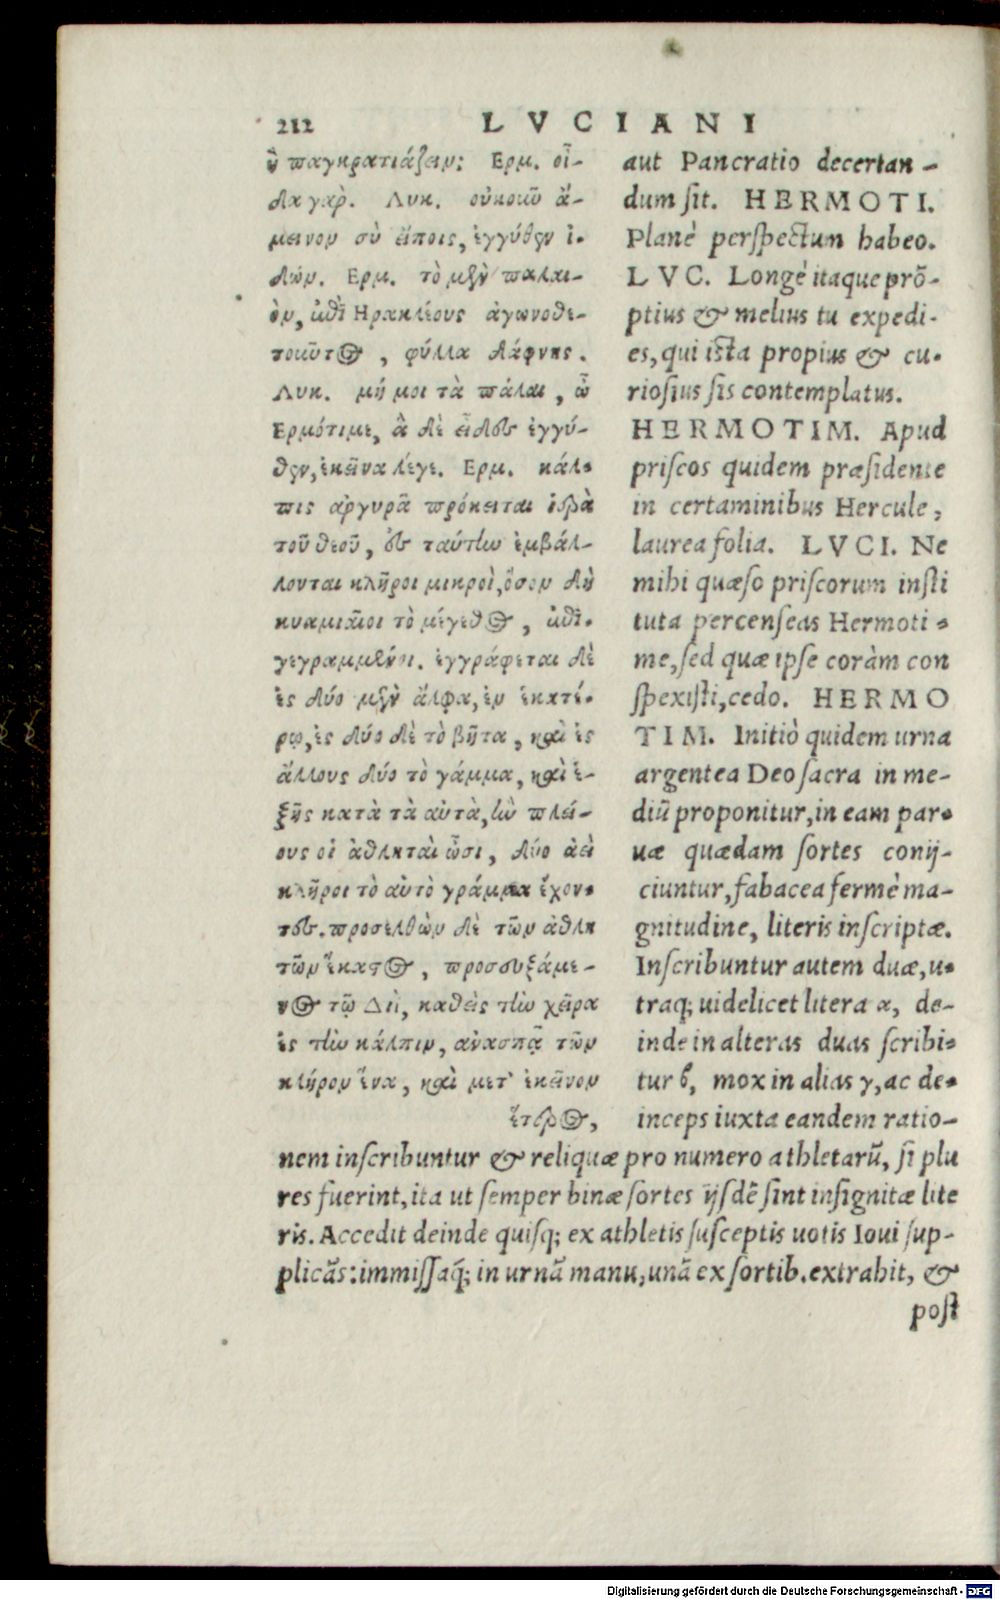 212 LVCIANI
ἢ παγκρατιάζειν; Ερμ. οἶ-
δα γάρ. Λυκ. οὐκοῦν ἄ-
μεινον σὺ εἴποις, ἐγγύθεν ἰ-
δών. Ερμ. τὸ μὲν παλαι-
ὸν, ἐπὶ Ηρακλέους ἀγωνοθε-
τοῦντος, φύλλα δάφνης.
Λυκ. μή μοι τὰ πάλαι, ὦ
Ερμότιμε, ἃ δὲ εἶδες ἐγγύ-
θεν, ἐκεῖνα λέγε. Ερμ. κάλ-
πις ἀργυρᾶ πρόκειται ἱερὰ
τοῦ θεοῦ, ἐς ταύτην ἐμβάλ-
λονται κλῆροι μικροὶ, ὅσον δὴ
κυαμιαῖοι τὸ μέγεθος, ἐπι-
γεγραμμένοι. ἐγγράφεται δὲ
ἐς δύο μὲν ἄλφα, ἐν ἑκατέ-
ρῳ, ἐς δύο δὲ τὸ βῆτα, καὶ ἐς
ἄλλους δύο τὸ γάμμα, καὶ ἑ-
ξῆς κατὰ τὰ αὐτὰ, ἢν πλεί-
ους οἱ ἀθληταὶ ὦσι, δύο ἀεὶ
κλῆροι τὸ αὐτὸ γράμμα ἔχον-
τες. προσελθὼν δὲ τῶν ἀθλη
τῶν ἕκαστος, προσευξάμε-
νος τῷ Διῒ, καθεὶς τὴν χεῖρα
ἐς τὴν κάλπιν, ἀνασπᾷ τῶν
κλήρον ἕνα, καὶ μετ' ἐκεῖνον
ἕτερος,
aut Pancratio decertan-
dum sit. HERMOTI.
Planè perspectum habeo.
LVC. Longè itaque prõ-
ptius & melius tu expedi-
es, qui ista propius & cu-
riosius sis contemplatus.
HERMOTIM. Apud
priscos quidem præsidente
in certaminibus Hercule,
laurea folia. LVCI. Ne
mihi quæso priscorum insti
tuta percenseas Hermoti-
me, sed quæ ipse coràm con
spexisti, cedo. HERMO
TIM. Initiò quidem urna
argentea Deo sacra in me-
diũ proponitur, in eam par-
uæ quædam sortes conij-
ciuntur, fabacea fermè ma-
gnitudine, literis inscriptæ.
Inscribuntur autem duæ, u-
traq; uidelicet litera α, de-
inde in alteras duas scribi-
tur ϐ, mox in alias γ, ac de-
inceps iuxta eandem ratio-
nem inscribuntur & reliquæ pro numero athletarũ, si plu
res fuerint, ita ut semper binæ sortes ijsdẽ sint insignitæ lite
ris. Accedit deinde quisq; ex athletis susceptis uotis Ioui sup-
plicãs: immissaq́; in urnã manu, unã ex sortib. extrahit, &
post
Digitalisierung gefördert durch die Deutsche Forschungsgemeinschaft - DFG